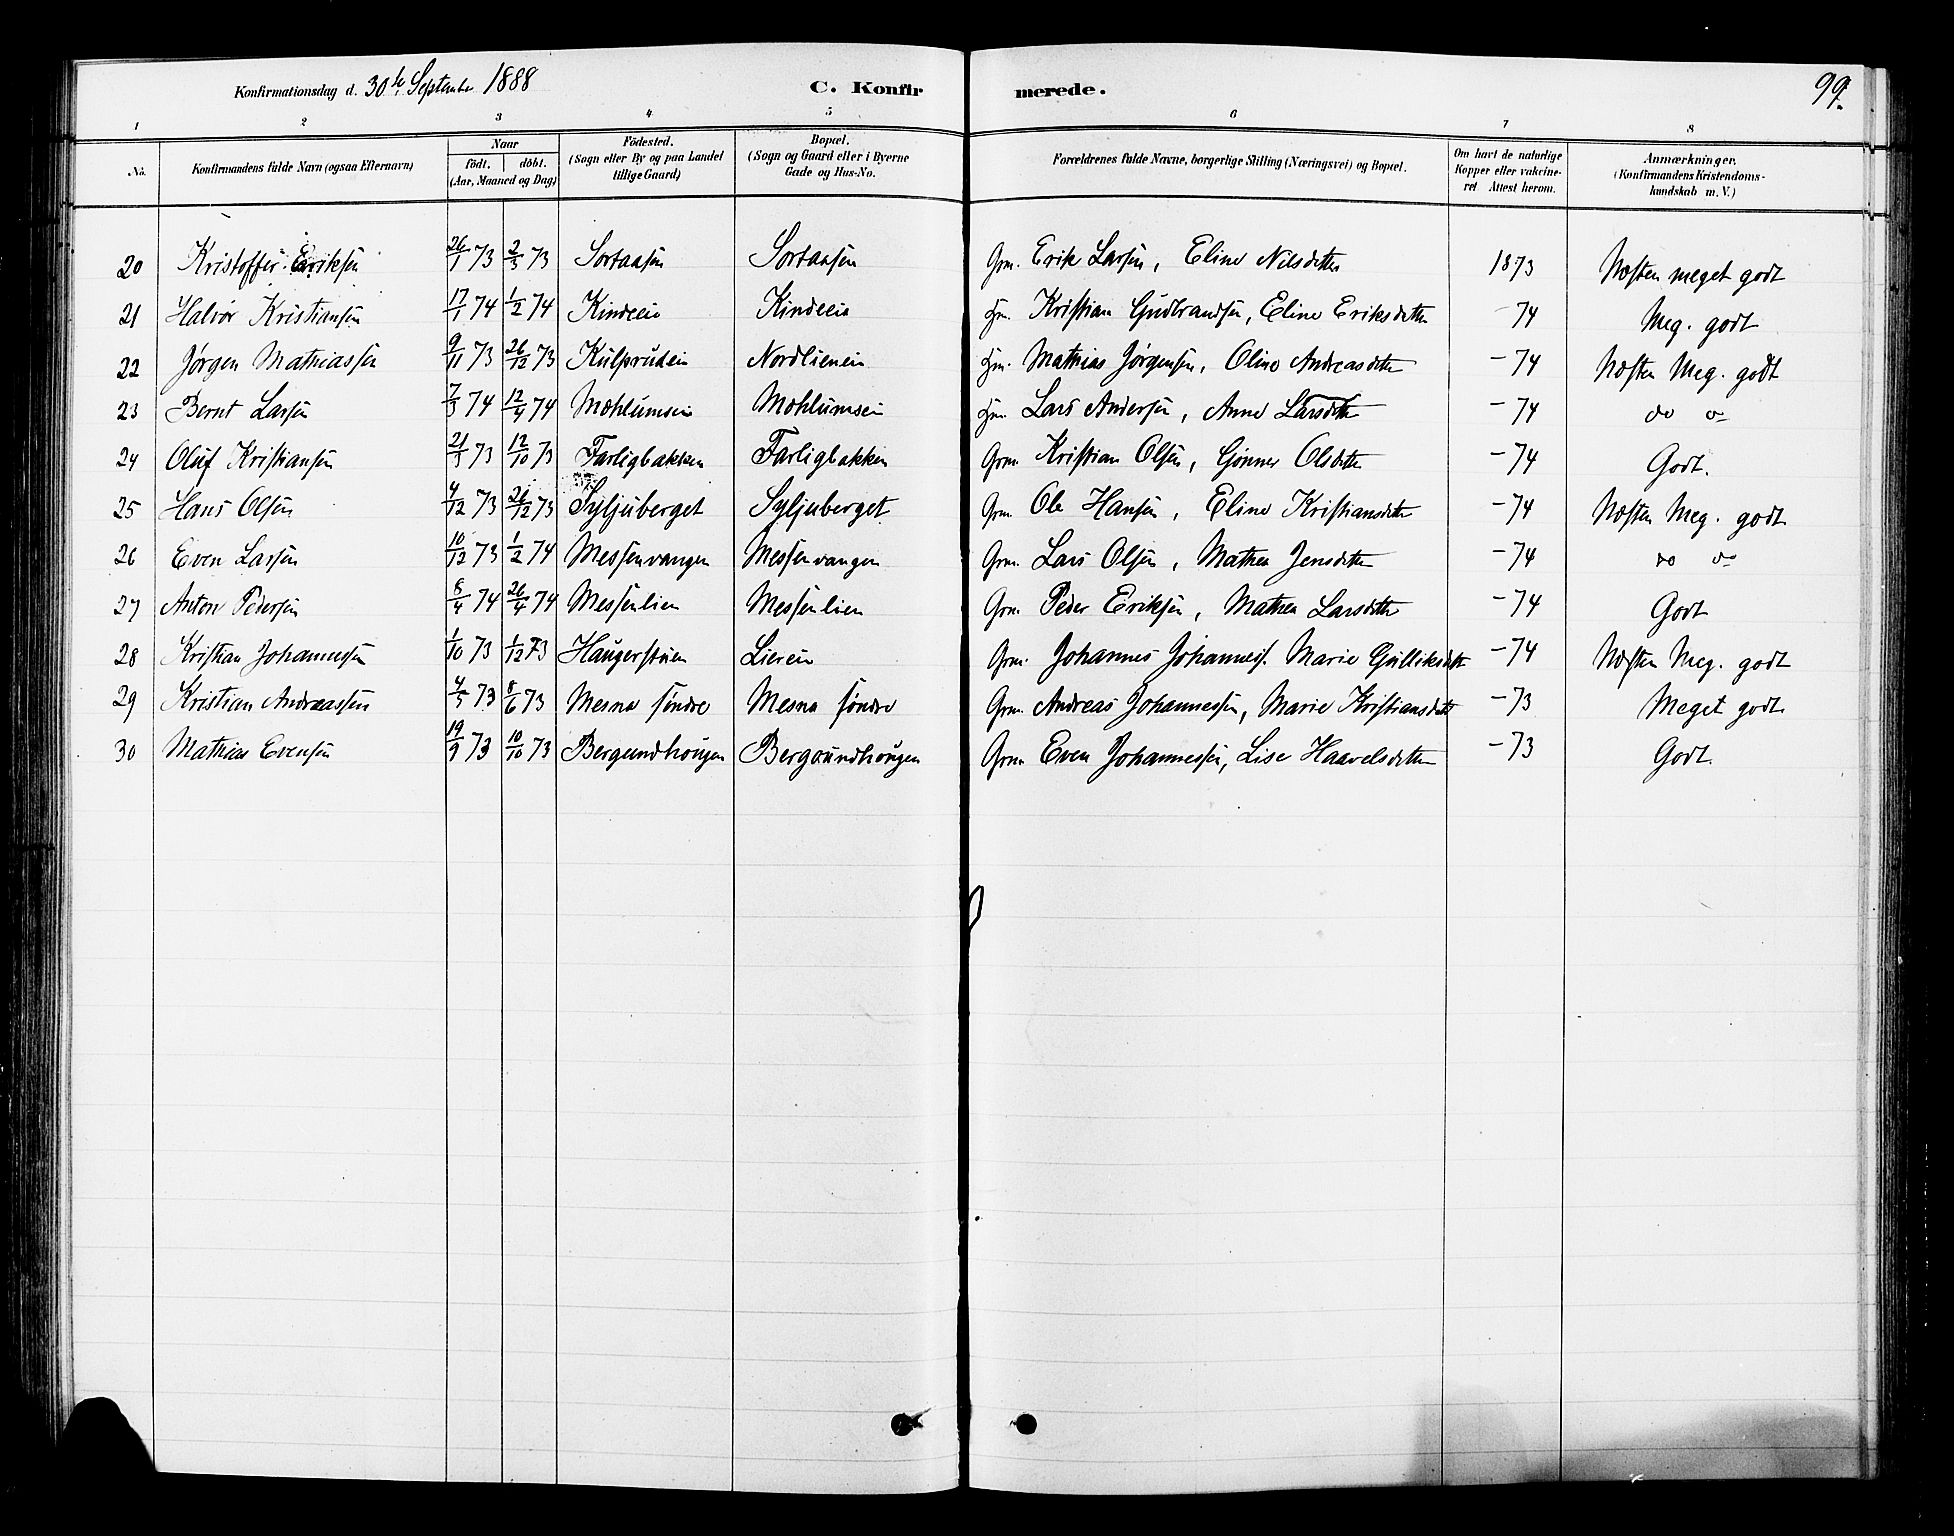 Konfirmationsdag d. 30te September 1888 C. Konfirmerede. 99.
1 2 3 4 5 6 7 8
No. Konfirmandens fulde Navn (ogsaa Efternavn) Naar født. døbt. (Aar, Maaned og Dag) Födested. (Sogn eller By og paa Landet tillige Gaard) Bopæl. (Sogn og Gaard eller i Byerne Gade og Hus-No. Forældrenes fulde Navne, borgerlige Stilling (Næringsvei) og Bopæl. Om havt de naturlige Kopper eller vakcineret. Attest herom. Anmærkninger. (Konfirmandens Kristendomskundskab m. V.)
20 Kristoffer Eriksen 26/1 73 2/3 73 Sortaasen Sortaasen Grm. Erik Larsen, Eline Nilsdatter 1873 Næsten meget godt
21 Halvor Kristiansen 17/1 74 1/2 74 Kindeeie Kindeeie Hm. Kristian Gudbrandsen, Eline Eriksdatter - 74 Meg. godt
22 Jørgen Mathiassen 9/11 73 26/12 73 Kulsrudeie Nordlieneie Hm. Mathias Jørgensen, Oline Andreasdatter - 74 Næsten Meg. godt
23 Bernt Larsen 7/3 74 12/4 74 Mæhlumseie Mæhlumseie Hm. Lars Andersen, Anne Larsdatter - 74 do o
24 Oluf Kristiansen 21/3 73 12/10 73 Farligbakken Farligbakken Grm. Kristian Olsen, Gønner Olsdatter - 74 Godt.
25 Hans Olsen 4/12 73 26/12 73 Syljuberget Syljuberget Grm. Ole Hansen, Eline Kristiansdatter - 74 Næsten Meg. godt
26 Even Larsen 10/12 73 1/2 74 Messenvangen Messenvangen Grm. Lars Olsen, Mathea Jensdatter - 74 do o
27 Anton Pedersen 8/4 74 26/4 74 Messenlien Messenlien Grm Peder Eriksen, Mathea Larsdatter - 74 Godt
28 Kristian Johannessen 1/10 73 1/12 73 Haugerstuen Liereie Grm. Johannes Johanness. Marie Gulliksdatter - 74 Næsten Meg. godt
29 Kristian Andreassen 4/5 73 8/6 73 Mesna søndre Mesna søndre Grm. Andreas Johannessen, Marie Kristiansdatt - 73 Meget godt
30 Mathias Evensen 19/9 73 10/10 73 Bergundhougen Bergsundhougen Grm Even Johannessen, Lise Haavelsdatter - 73 Godt.